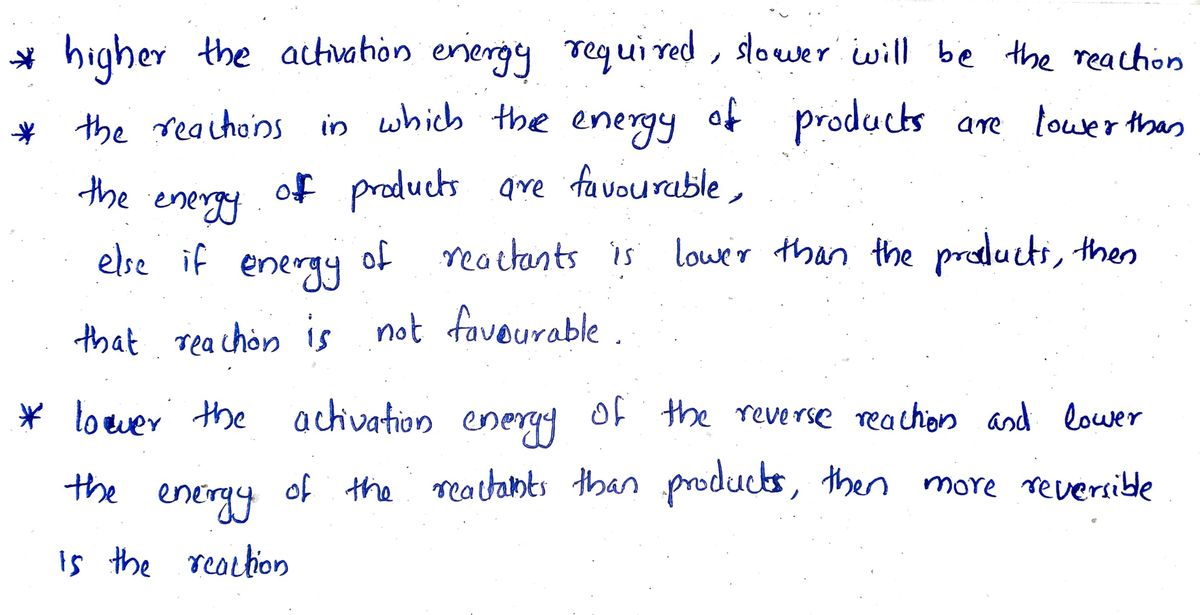 * higher the activation energy required, slower will be the reaction
* the reactions in which the energy of products are lower than
the energy of products are favourable,
else if energy of reactants is lower than the products, then
that reaction is not favourable.
* lower the activation energy of the reverse reaction and lower
the energy of the reactants than products, then more reversible
is the reaction